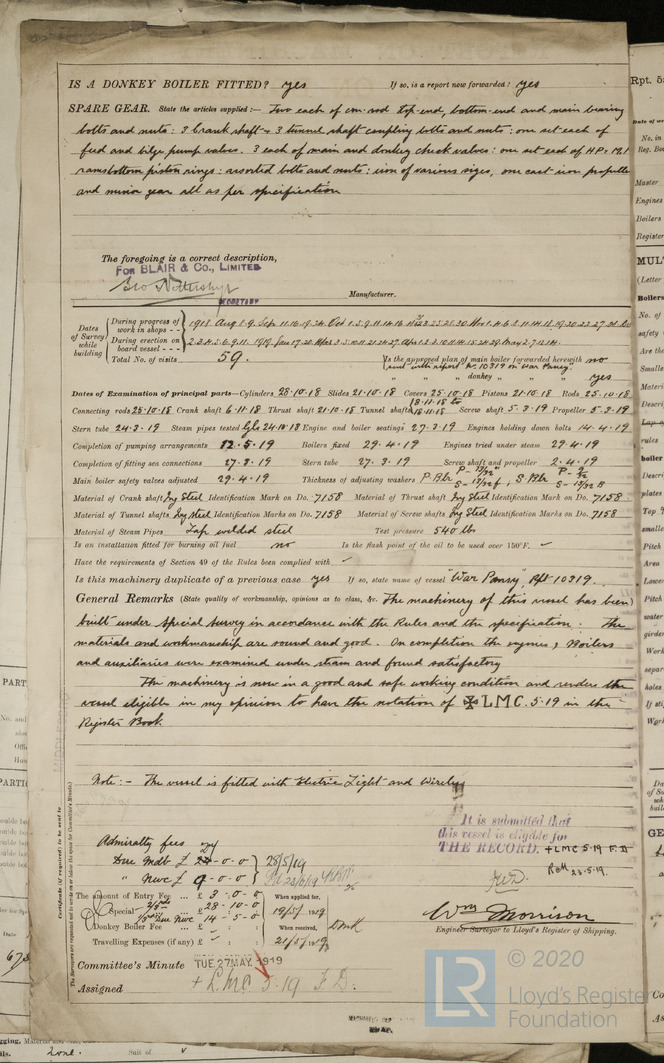 IS A DONKEY BOILER FITTED? yes If so, is a report now forwarded? yes
SPARE GEAR. State the articles supplied:— Two each of con-rod top-end, bottom-end and main bearing
bolts and nuts: 3 crank shaft & 3 tunnel shaft coupling bolts and nuts: one set each of
feed and bilge pump valves. 3 each of main and donkey check valves: one set each of H.P.
ramsbottom piston rings: assorted bolts and nuts: iron of various sizes, one cast iron propeller
and minor gear all as per specification
The foregoing is a correct description,
FOR BLAIR & Co., LIMITED
SECRETARY
Manufacturer.
Dates of Survey while building
During progress of work in shops - - 1918 Aug 8.9. Sep. 11.16.19.24. Oct
During erection on board vessel - - - 2.3.4.5.6.9.11. 1919 Jan 17.20.
Total No. of visits 59.
Is the approved plan of main boiler forwarded herewith no
sent with report No. 10319 on War Pansy.
" " " donkey " " " yes
Dates of Examination of principal parts—Cylinders 25.10.18 Slides 21.10.18 Covers 25.10.18 Pistons 21.10.18 Rods 25.10.18
Connecting rods 25.10.18 Crank shaft 6.11.18 Thrust shaft 21.10.18 Tunnel shafts 18.11.18 Screw shaft 5.3.19 Propeller 5.3.19
Stern tube 24.3.19 Steam pipes tested 24.10.18 Engine and boiler seatings 27.3.19 Engines holding down bolts 14.4.19
Completion of pumping arrangements 12.5.19 Boilers fixed 29.4.19 Engines tried under steam 29.4.19
Completion of fitting sea connections 27.3.19 Stern tube 27.3.19 Screw shaft and propeller 2.4.19
Main boiler safety valves adjusted 29.4.19 Thickness of adjusting washers
Material of Crank shaft Ing Steel Identification Mark on Do. 7158 Material of Thrust shaft Ing Steel Identification Mark on Do. 7158
Material of Tunnel shafts Ing Steel Identification Marks on Do. 7158 Material of Screw shafts Ing Steel Identification Marks on Do. 7158
Material of Steam Pipes Lap welded steel Test pressure 540 lbs
Is an installation fitted for burning oil fuel no Is the flash point of the oil to be used over 150°F. –
Have the requirements of Section 49 of the Rules been complied with –
Is this machinery duplicate of a previous case yes If so, state name of vessel "War Pansy", Rpt 10319.
General Remarks (State quality of workmanship, opinions as to class, &c. The machinery of this vessel has been
built under Special Survey in accordance with the Rules and the specification. The
materials and workmanship are sound and good. On completion the engines, Boilers
and auxiliaries were examined under steam and found satisfactory
The machinery is now in a good and safe working condition and renders the
vessel eligible in my opinion to have the notation of ✠ LMC. 5.19 in the
Register Book.
Note:- The vessel is fitted with Electric Light and Wireless
It is submitted that
this vessel is eligible for
THE RECORD. + LMC 5.19 F.D.
23.5.19.
Admiralty fees
Due Mdb £ 24-0-0 } 28/5/19
" Nwc £ 9-0-0
The amount of Entry Fee ... £ 3-0-0 When applied for,
Special ... £ 28-10-0 19/5/1919
Nwc 14-5-0
Donkey Boiler Fee ... £ : : When received,
Travelling Expenses (if any) £ : : 21/5/1919
Wm Morrison
Engineer Surveyor to Lloyd's Register of Shipping.
Committee's Minute TUE 27 MAY. 1919
Assigned + LMC 5.19 F.D.
© 2020
LR
Lloyd's Register
Foundation